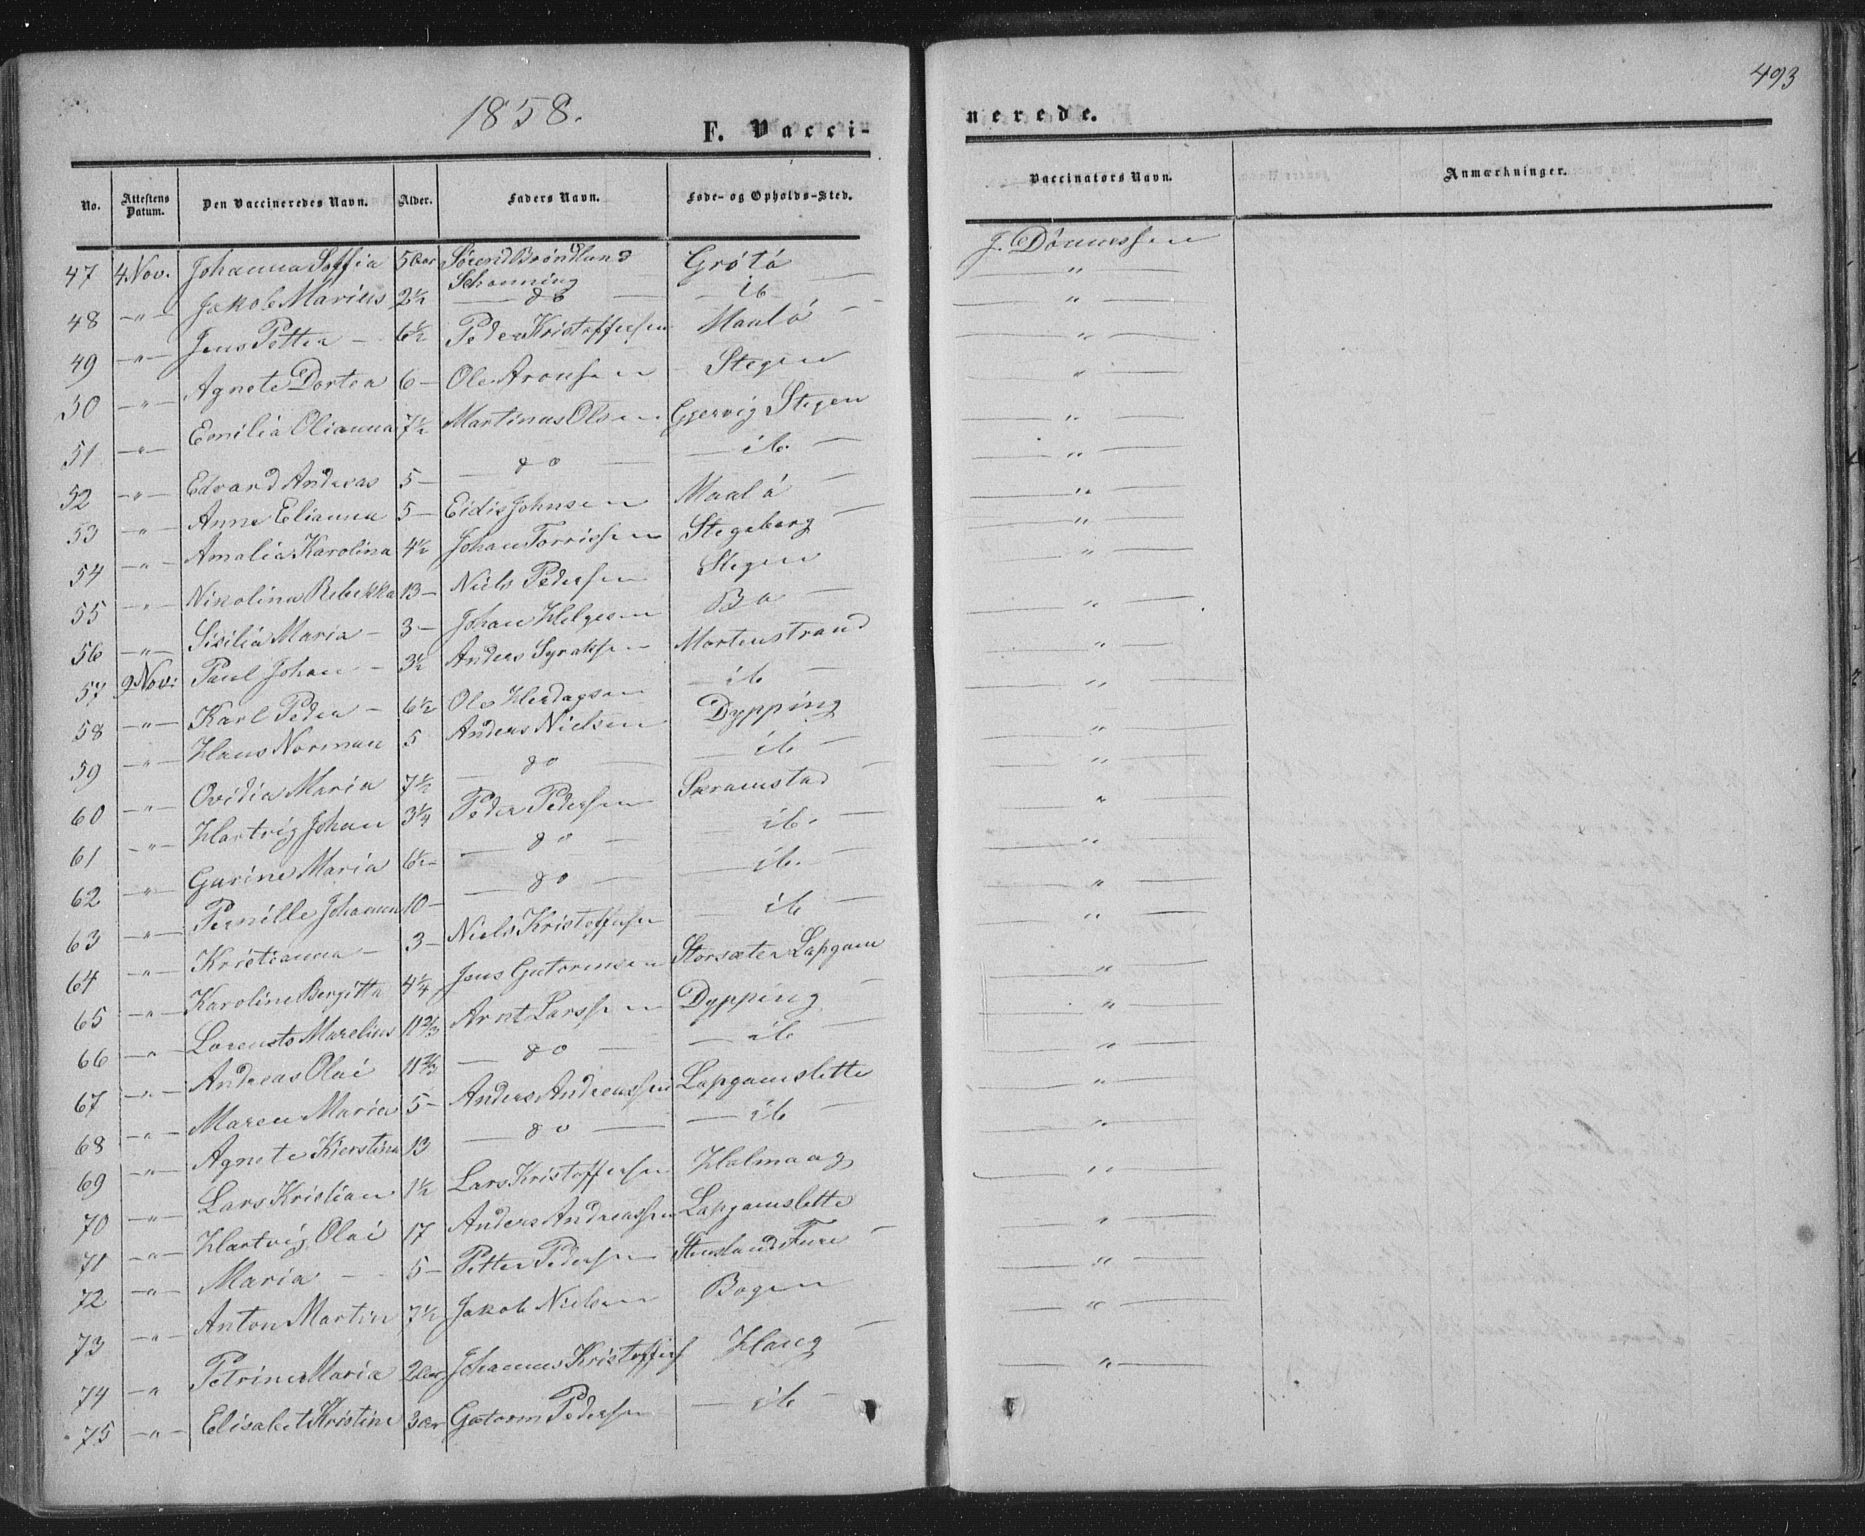 493
1858.
F. Vacci-
nerede.
No. Attestens Datum. Den Vaccineredes Navn. Alder. Faders Navn. Føde- og Opholds-Sted. Vaccinators Navn. Anmærkninger.
47 4 Nov. Johanna Soffia 5 aar Sørend Brøndlund Schønning Grøtø J. Dønnessen
48 -"- Jakob Marius 2½ — do — ib — "
49 -"- Jens Petter — 6½ Peder Kristoffersen Maalø — "
50 -"- Agnete Dortea 6 — Ole Aronsen Stegen "
51 -"- Emilia Olianna 7½ Martinus Olsen Gjervig Stegen "
52 -"- Edvard Andreas 5 — — do — ib. — "
53 -"- Anne Elianna 5 — Eidis Johnsen Maalø — "
54 -"- Amalia Karolina 4½ Johan Torrissen Stegeberg — "
55 -"- Nikolina Rebekka 13 — Niels Pedersen Stegen "
56 -"- Sisilia Maria — 3 — Johan Helgesen Bø — "
57 9 Nov: Paul Johan — 3½ Anders Syraksen Martenstrand "
58 -"- Karl Peder — 6½ Ole Herdagsen — ib — "
59 -"- Hans Norman 5 Anders Nielsen Dypping "
60 -"- Ovidia Maria 7½ — do — — ib — "
61 -"- Hartvig Johan 3¼ Peder Pedersen Skramstad "
62 -"- Gurine Maria 6½ — do — ib. — "
63 -"- Pernille Johanna 10 — — do — — ib. — "
64 -"- Kristianna — 3 — Niels Kristoffersen — ib — "
65 -"- Karoline Bergitta 4¼ Jens Gutormsen Storsæter Lapgam "
66 -"- Lorents Marelius 11⅔ Arnt Larssen Dypping — "
67 -"- Andreas Olai 11⅔ — do — — ib — "
68 -"- Maren Maria 5 — Anders Andreassen Lapgamslette "
69 -"- Agnete Kierstina 13 — do — — ib — "
70 -"- Lars Kristian 1½ Lars Kristoffersen Holmaag "
71 -"- Hartvig Olai 17 Anders Andreassen Lapgamslette "
72 -"- Maria — 5 — Petter Pedersen Stenlands Fure — "
73 -"- Anton Martin 7½ Jakob Nielsen Bogen "
74 -"- Petrine Maria 2 aar Johannes Kristoffers Haug — "
75 -"- Elisabet Kristine 3 aar Gutorm Pedersen — ib —